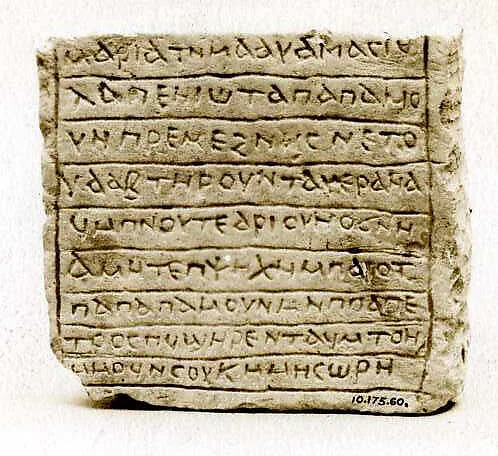 ⲙⲁⲣⲓⲁⲧⲛⲙⲁⲁⲩⲁⲙⲁⲥⲓⲃ
ⲗⲁⲡⲉⲛⲓⲱⲧⲁⲡⲁⲡⲁⲙⲟ
ⲩⲛⲡⲣⲉⲙⲉϩⲛⲏⲥⲛⲉⲧⲟ
ⲩⲁⲁⲃⲧⲏⲣⲟⲩⲛⲧⲁⲩⲉⲣⲁⲛⲁ
ϥⲙⲡⲛⲟⲩⲧⲉⲁⲣⲓⲟⲩⲛⲟϭⲛⲛ
ⲁⲙⲛⲧⲉⲯⲩⲭⲏⲙⲡⲁⲓⲟⲧ
ⲡⲁⲡⲁⲡⲁⲙⲟⲩⲛⲙⲛⲡⲟⲁⲡⲉ
ⲧⲣⲟⲥⲡⲩϣⲏⲣⲉⲛⲧⲁⲩⲙⲧⲟⲛ
ⲙⲙⲟⲩⲛⲥⲟⲩⲕⲙⲙⲏⲥⲱⲣⲏ
10.175.60.